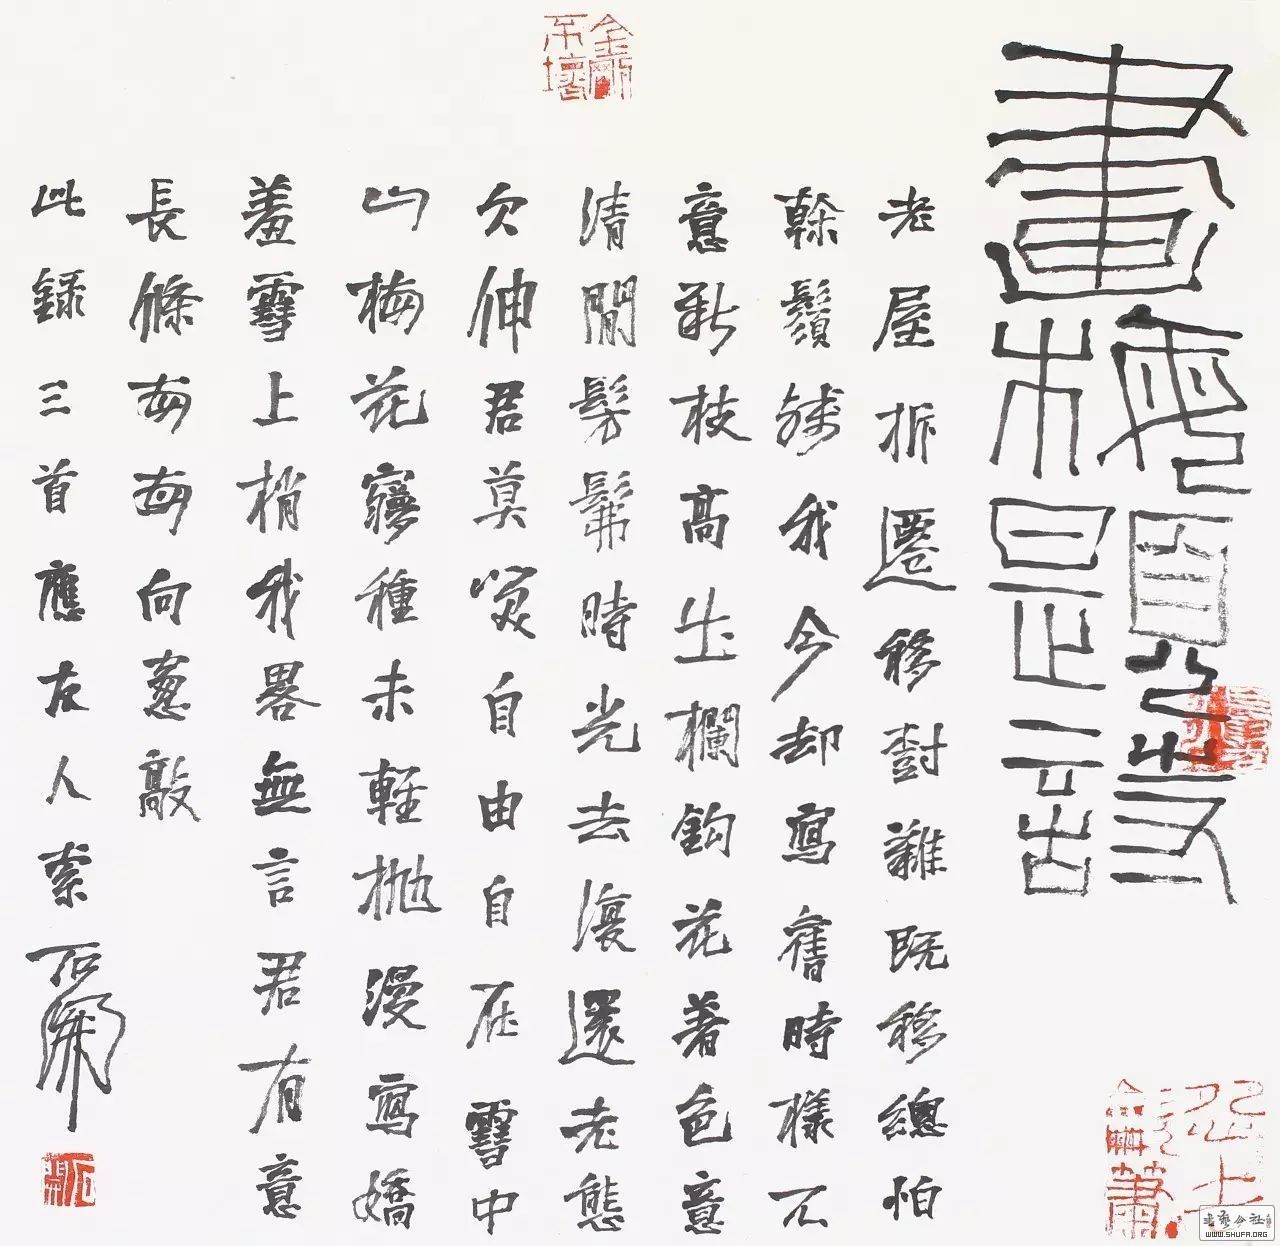 畫梅
老屋拆遷移對難既移總怕
榦鬚殘我今却寫舊時樣不
意新枝高出欄鈎花著色意
清閒髣髴時光去復還老態
欠伸君莫笑自由自在雪中
山梅花種未輕拋漫寫嬌
羞雪上梢我畧無言君有意
長條每每向窻敲
此錄三首應友人索石開
金剛不壞
石開
書法公社
WWW.SHUFA.ORG